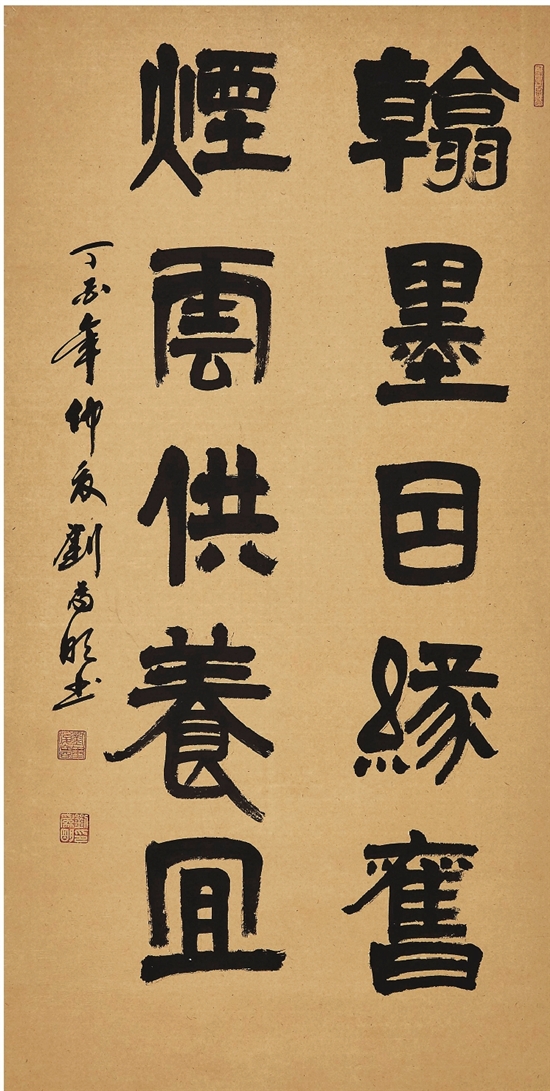 翰墨因緣舊
煙雲供養宜
丁酉年仲夏劉書